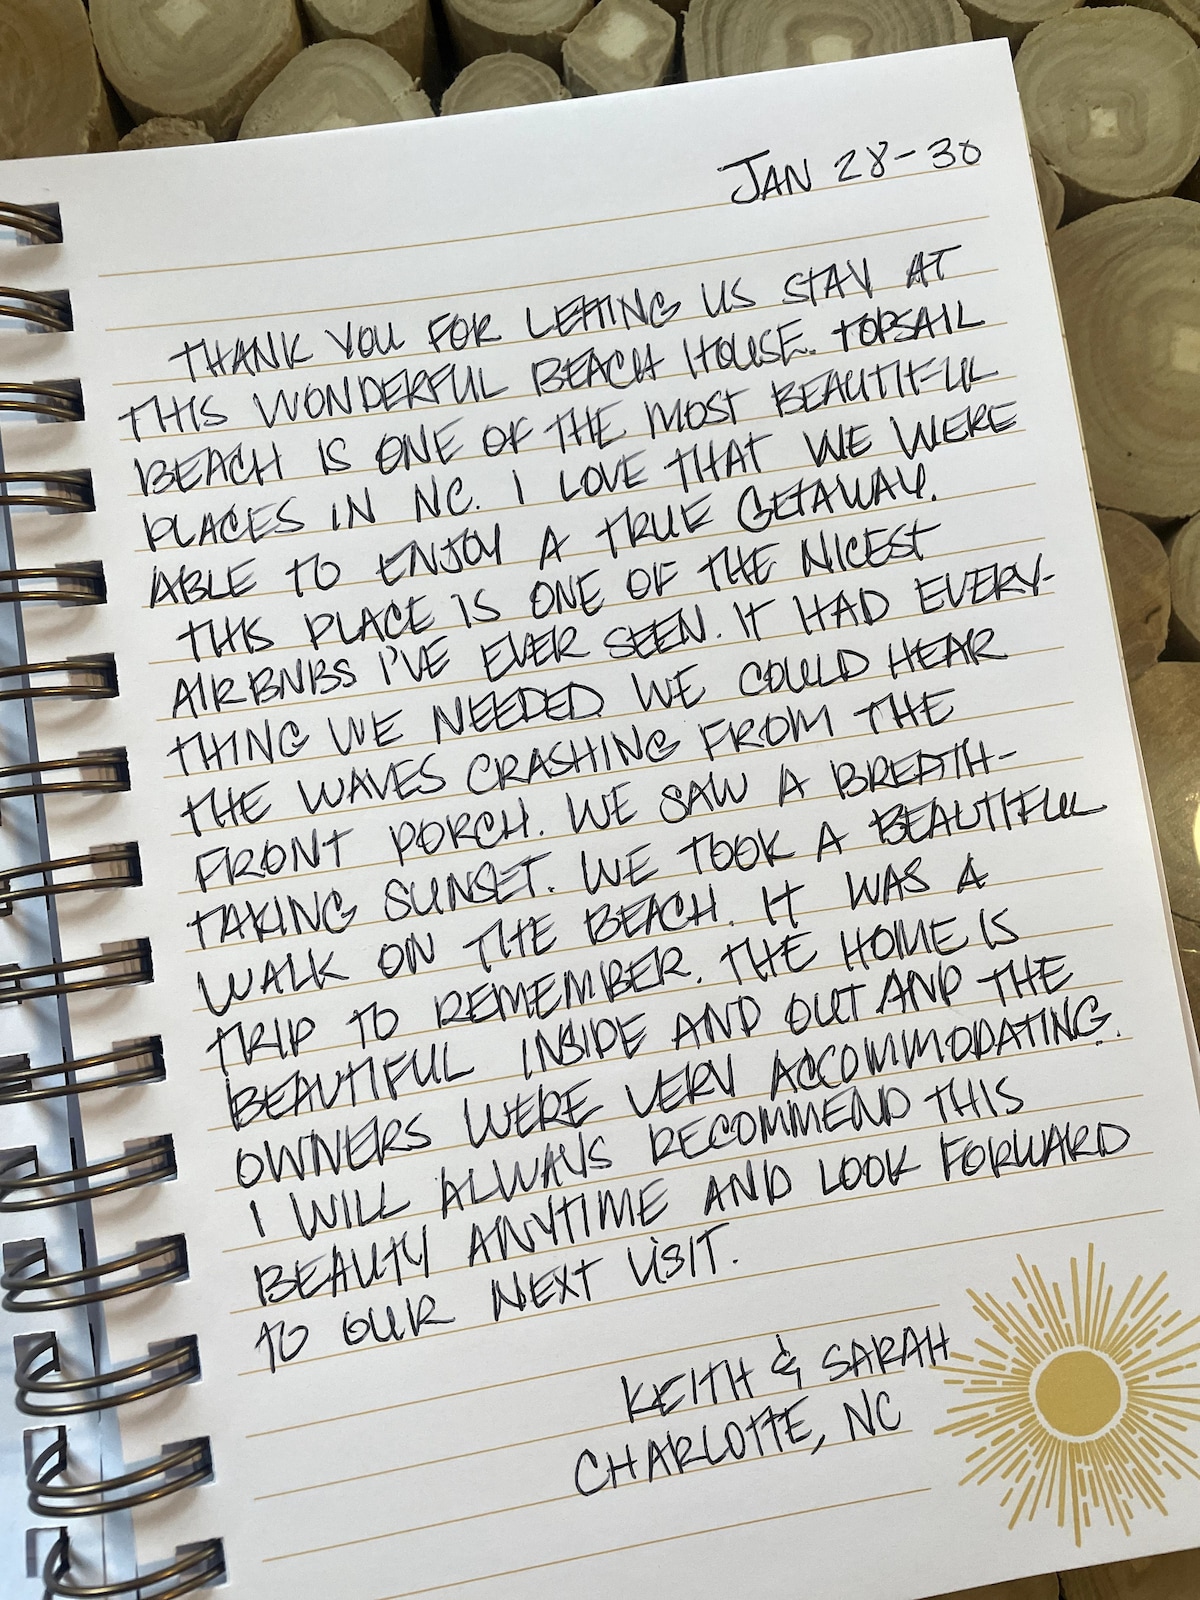 JAN 28-30
THANK YOU FOR LETTING US STAY AT
THIS WONDERFUL BEACH HOUSE. TOPSAIL
BEACH IS ONE OF THE MOST BEAUTIFUL
PLACES IN NC. I LOVE THAT WE WERE
ABLE TO ENJOY A TRUE GETAWAY.
THIS PLACE IS ONE OF THE NICEST
AIRBNBS I'VE EVER SEEN. IT HAD EVERY-
THING WE NEEDED. WE COULD HEAR
THE WAVES CRASHING FROM THE
FRONT PORCH. WE SAW A BREATH-
TAKING SUNSET. WE TOOK A BEAUTIFUL
WALK ON THE BEACH. IT WAS A
TRIP TO REMEMBER. THE HOME IS
BEAUTIFUL INSIDE AND OUT AND THE
OWNERS WERE VERY ACCOMMODATING.
I WILL ALWAYS RECOMMEND THIS
BEAUTY ANYTIME AND LOOK FORWARD
TO OUR NEXT VISIT.
KEITH & SARAH
CHARLOTTE, NC